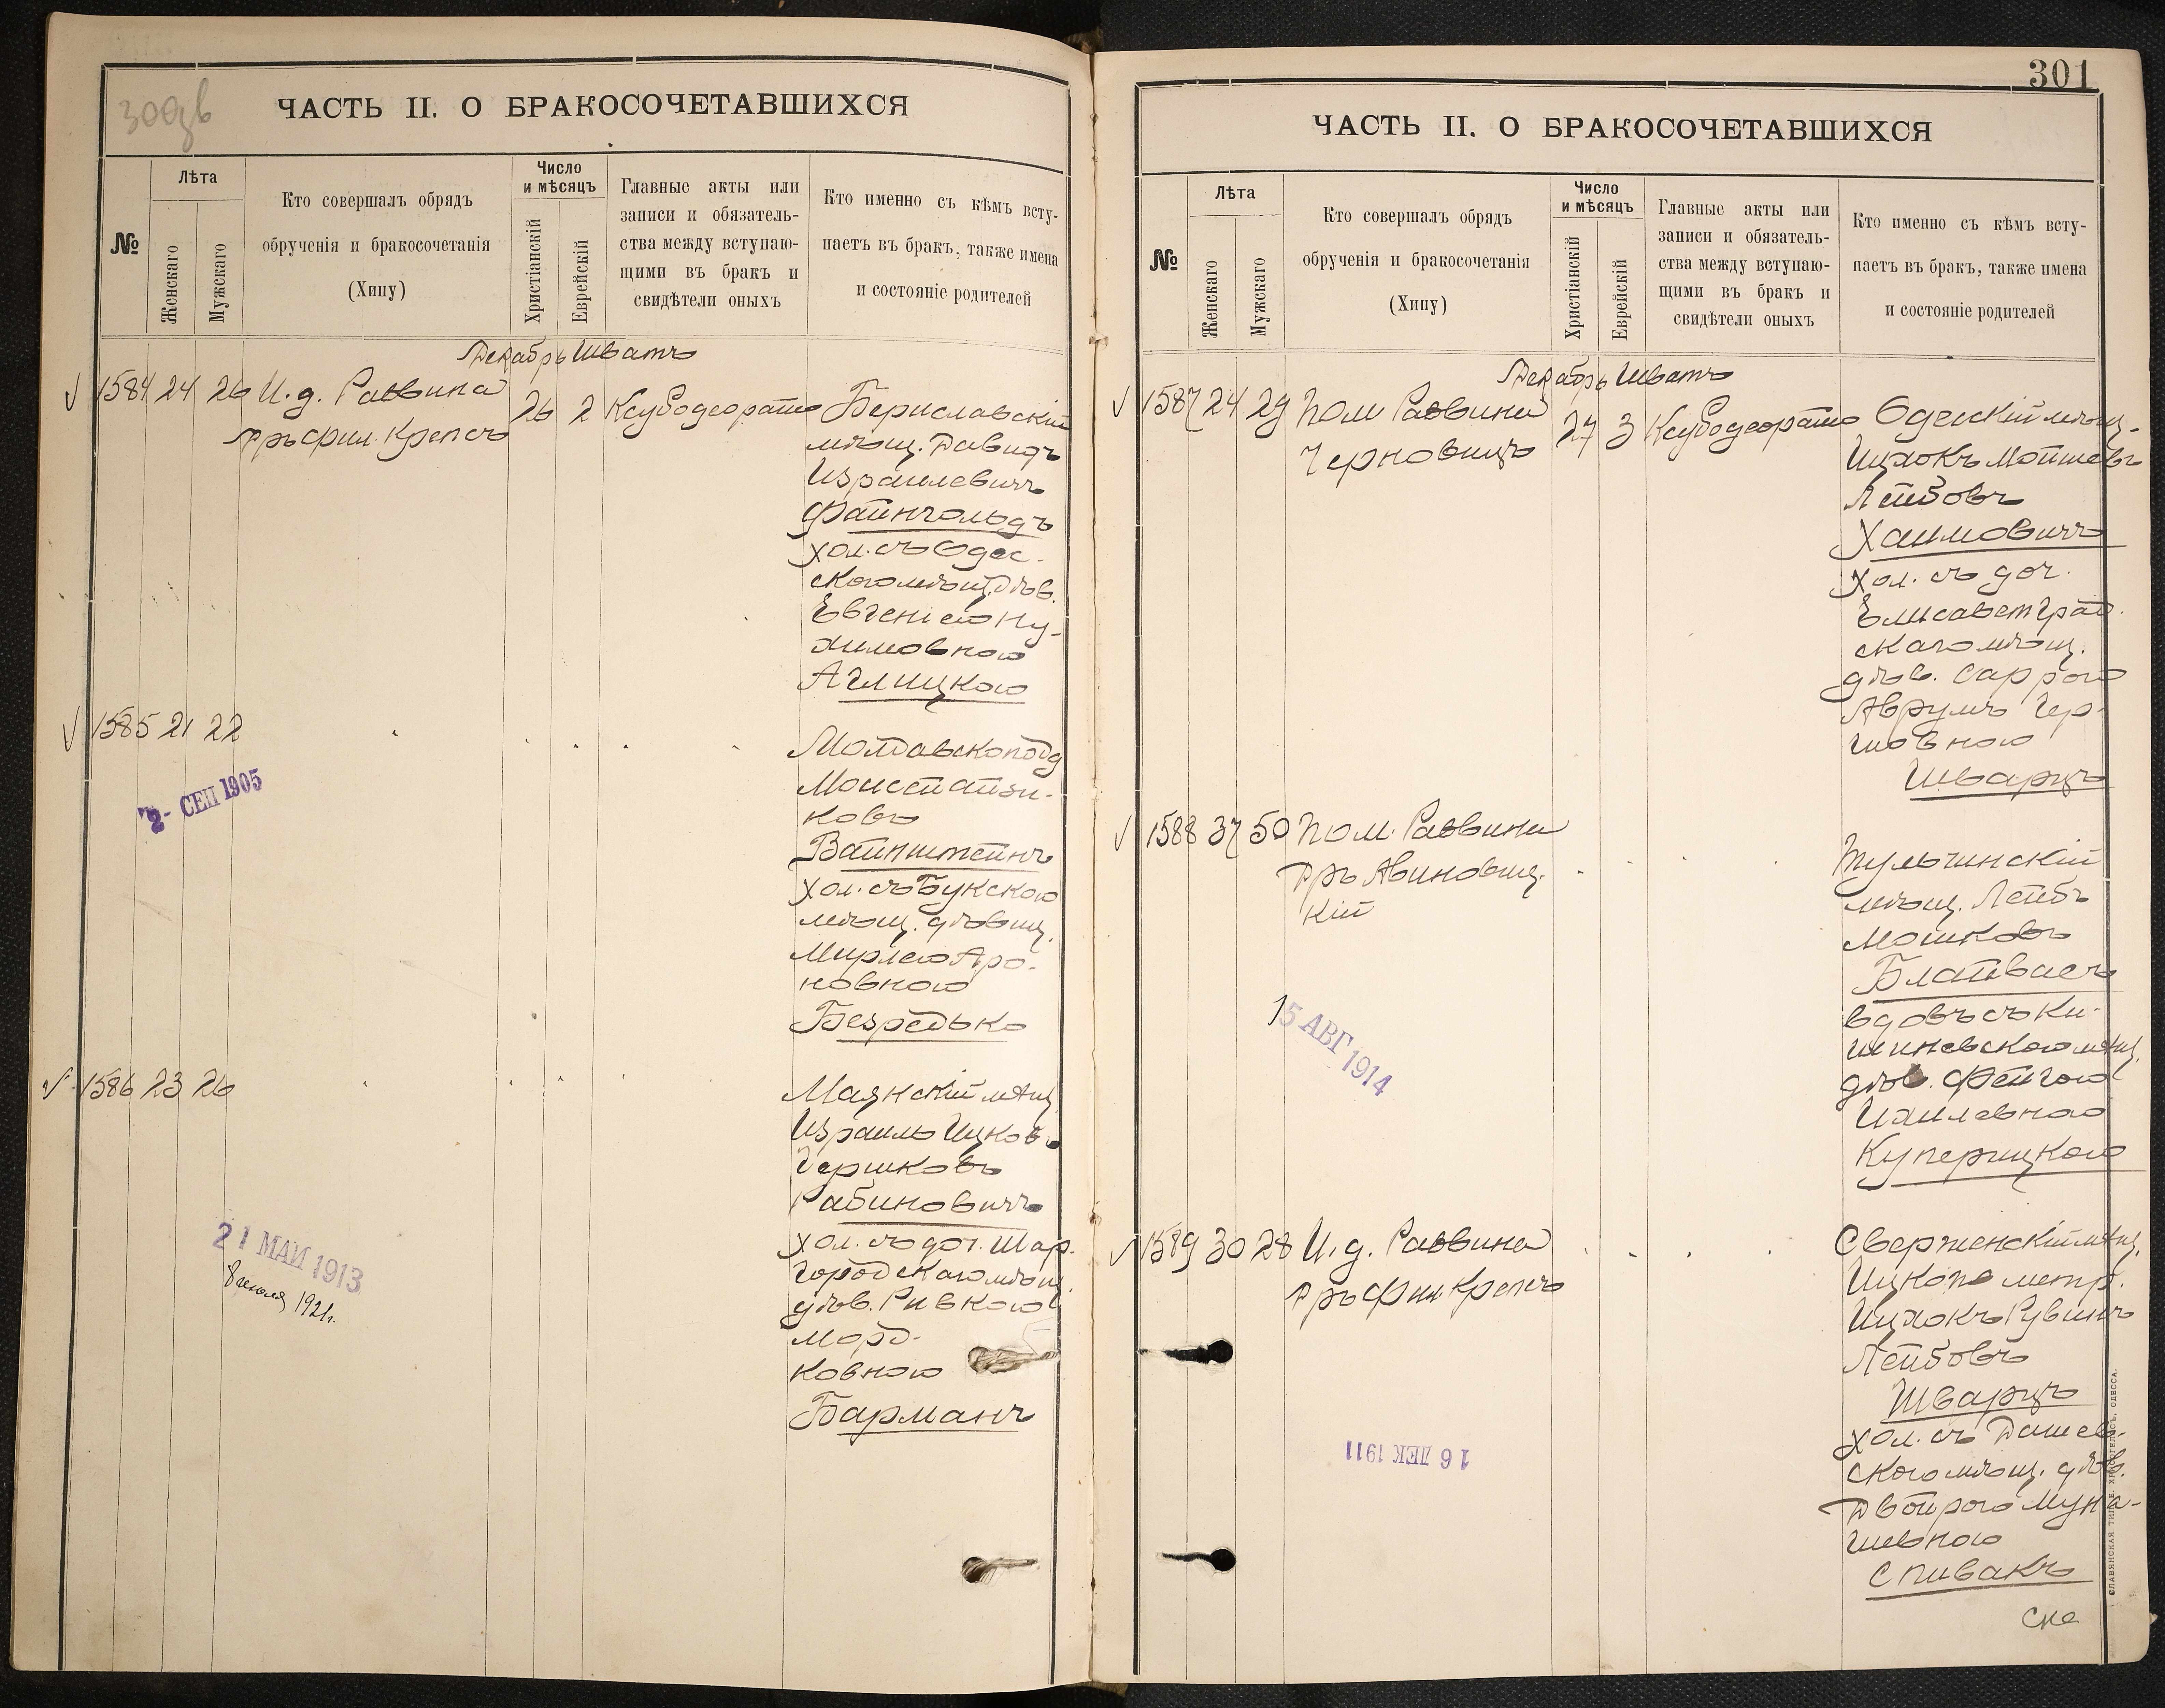 300зв
ЧАСТЬ II. О БРАКОСОЧЕТАВШИХСЯ
№
Лѣта
Женскаго
Мужскаго
Кто совершалъ обрядъ
обрученія и бракосочетанія
(Хипу)
Число
и мѣсяцъ
Христіанскій
Еврейскій
Главные акты или
записи и обязатель-
ства между вступаю-
щими въ бракъ и
свидѣтели оныхъ
Кто именно съ кѣмъ всту-
паетъ въ бракъ, также имена
и состояніе родителей
Декабрь Шватъ
1584 24 26 И.д. Раввина
Дръ фил. Крепсъ
26 2
Бериславскій
мѣщ. Давидъ
Израилевичъ
Файнгольдъ
хол. съ Одес-
скою мѣщ. дѣв.
Евгеніею Ну-
химовною
Аглицкою
1585 21 22
2- СЕН 1905
Молдавскопод
Моисей Айзи-
ковъ
Вайнштейнъ
хол. съ Букскою
мѣщ. дѣвиц.
Мирлею Аро-
новною
Безредько
1586 23 26
21 МАЙ 1913
1921г.
Маякскій мѣщ.
Израиль Ицковъ
Гершковъ
Рабиновичъ
хол. съ доч. Шар-
городскаго мѣщ.
дѣв. Ривкою
Морд-
ковною
Барманъ
301
ЧАСТЬ II. О БРАКОСОЧЕТАВШИХСЯ
№
Лѣта
Женскаго
Мужскаго
Кто совершалъ обрядъ
обрученія и бракосочетанія
(Хипу)
Число
и мѣсяцъ
Христіанскій
Еврейскій
Главные акты или
записи и обязатель-
ства между вступаю-
щими въ бракъ и
свидѣтели оныхъ
Кто именно съ кѣмъ всту-
паетъ въ бракъ, также имена
и состояніе родителей
Декабрь Шватъ
1587 24 29 Пом Раввина
Черновицъ
27 3
Одесскій мѣщ.
Ицхокъ Мойшевъ
Лейбовъ
Хаимовичъ
хол. съ доч.
Елисаветград-
скаго мѣщ.
дѣв. Саррою
Аврумъ Гер-
шовною
Шварцъ
1588 37 50 Пом. Раввина
Дръ Авиновиц-
кій
15 АВГ 1914
Тульчинскій
мѣщ. Лейбъ
Мошковъ
Блайвасъ
вдовъ съ Ки-
шиневскою мѣщ.
дѣв. Фейгою
Ихилевною
Куперицкою
1589 30 28 И.д. Раввина
Дръ Фил Крепсъ
16 ДЕК 1911
Сверженскій мѣщ.
Ицко по метр.
Ицхокъ Рувинъ
Лейбовъ
Шварцъ
хол. съ Дашев-
скою мѣщ. дѣв.
Двойрою Муна-
шевною
Спивакъ
СЛАВЯНСКАЯ ТИП. Е. ХРИСОГЕЛОСЪ, ОДЕССА.